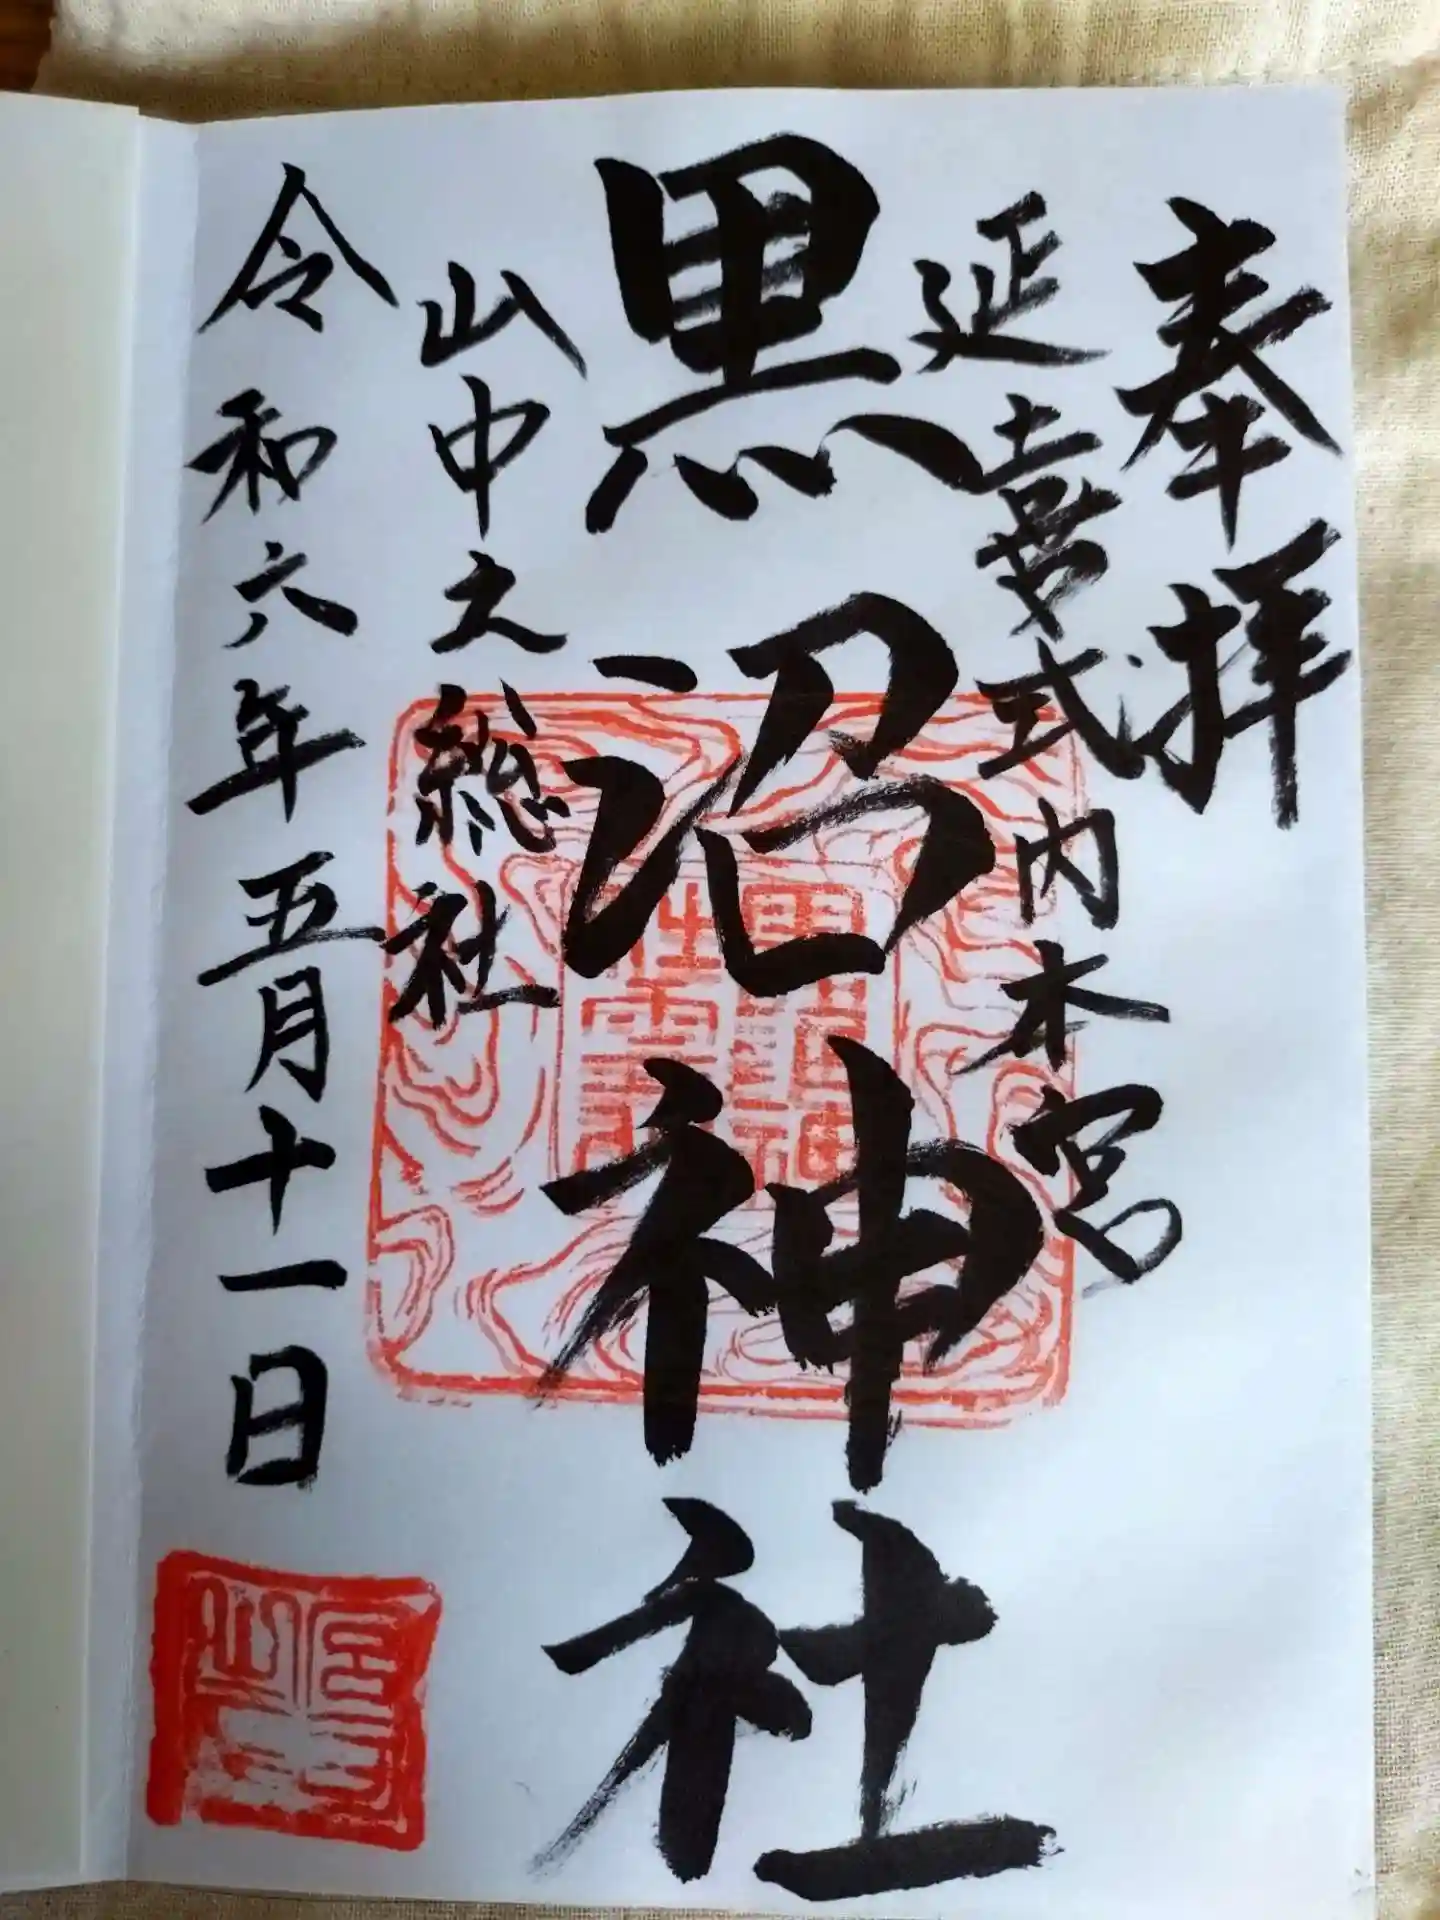 奉拝
延喜式内木宮
黒沼神社
山中之総社
令和六年五月十一日